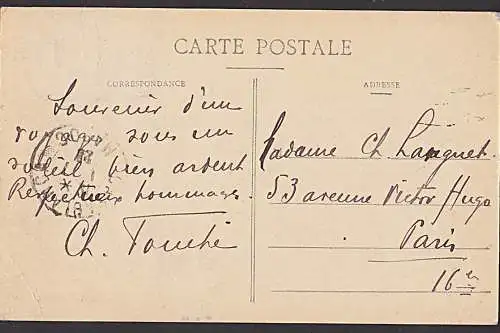 CARTE POSTALE
CORRESPONDANCE
ADRESSE
Souvenir d'un
sous un
soleil bien ardent
Respectueux hommages
Ch.
Madame Ch.
53 avenue Victor Hugo
Paris
16e